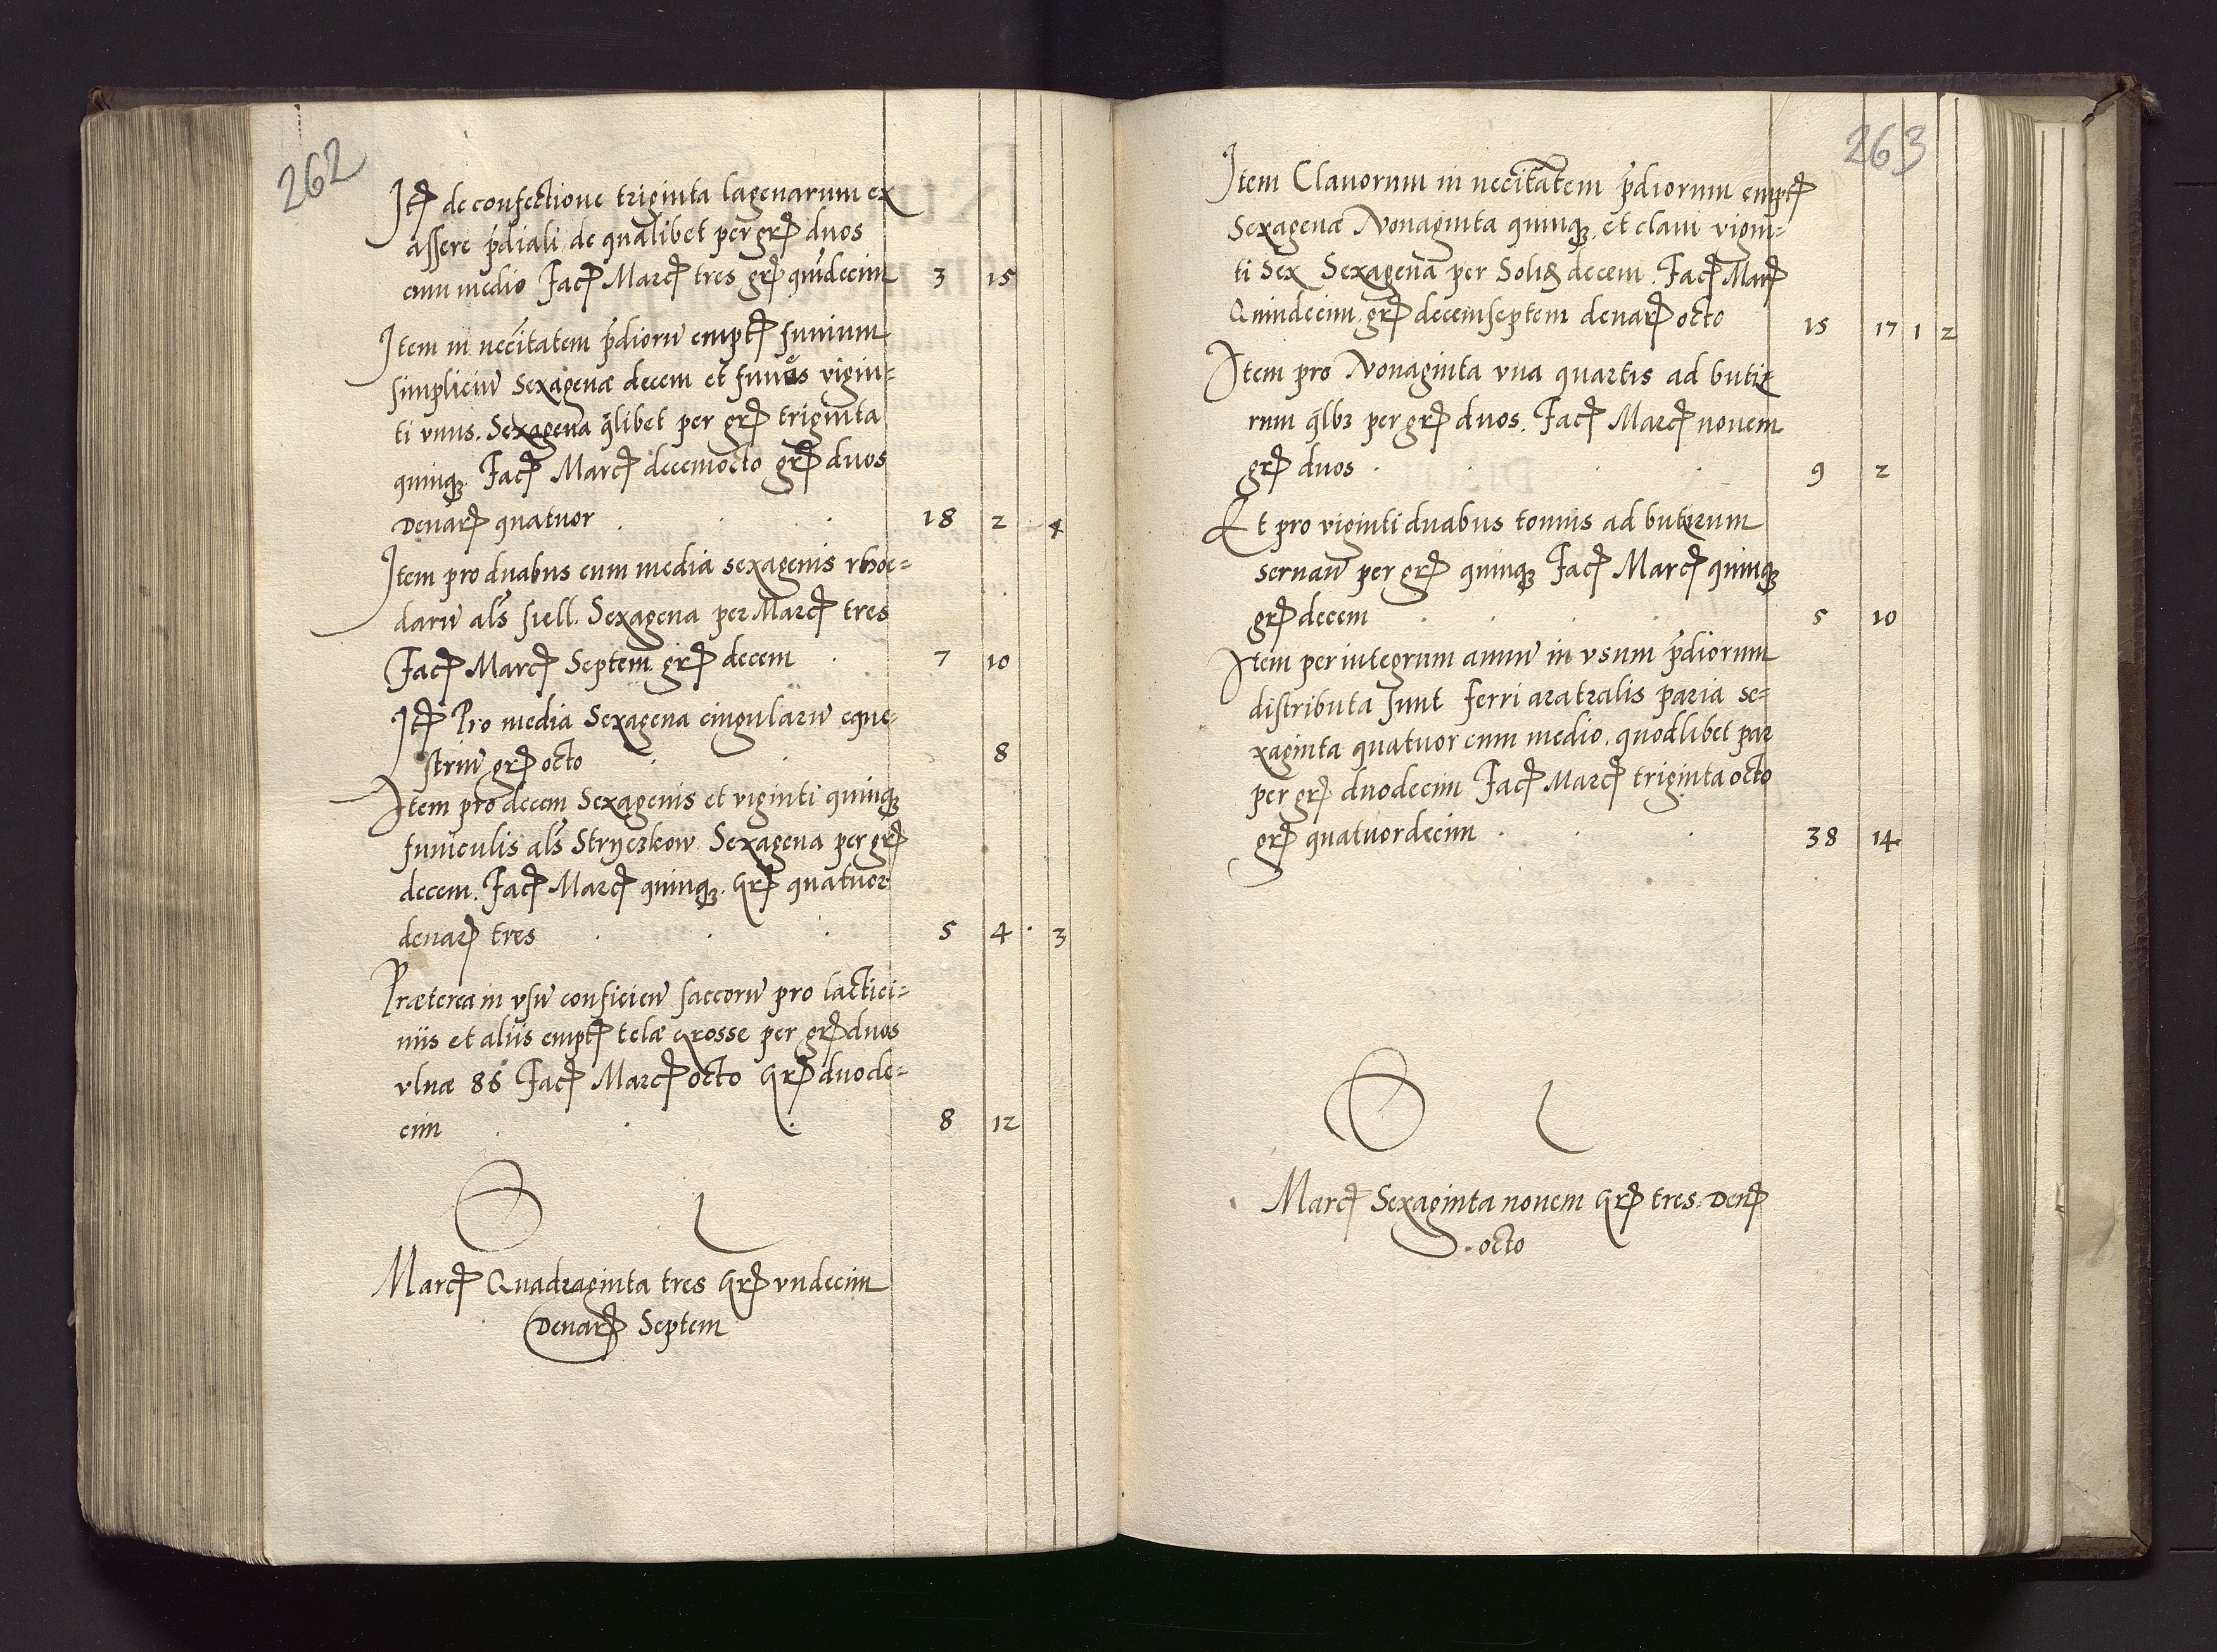 262
Itᶒ de confectione triginta lagenarum ex
assere p̄diali de qualibet per grꝭ duos
cum medio Facꝭ Marcꝭ tres grꝭ quīdecim 3 15
Item in necītatem p̄dioru̅ emptꝭ funium
simpliciu̅ Sexagenæ decem et funes vigin=
ti vnus. Sexagena q̄libet per grꝭ triginta
quinqꝫ. Facꝭ Marcꝭ decemocto grꝭ duos
Denarꝭ quatuor 18 2 4
Item pro duabus cum media sexagenis
daru̅ als̄ siell. Sexagena per Marcꝭ tres
Facꝭ Marcꝭ Septem grꝭ decem 7 10
Itꝭ Pro media Sexagena cingularu̅ eque=
striu̅ grꝭ octo 8
Item pro decem Sexagenis et viginti quinqꝫ
funiculis als̄ Stryczkow Sexagena per grꝭ
decem. Facꝭ Marcꝭ quinqꝫ. Grꝭ quatuor
denarꝭ tres 5 4 3
Præterea in vsu̅ conficien̄ saccoru̅ pro lactici=
niis et aliis emptꝭ telæ grosse per grꝭ duos
vlnæ 86 Facꝭ Marcꝭ octo Grꝭ duode=
cim 8 12
Marcꝭ Quadraginta tres Grꝭ vndecim
Denarꝭ Septem
263
Item Clauorum in necītatem p̄diorum emptꝭ
Sexagenæ Nonaginta quinqꝫ. et claui vigin=
ti Sex Sexagena̅ per Solid decem. Facꝭ Marꝭ
Quindecim. grꝭ decemseptem denarꝭ octo 15 17 1 2
Item pro Nonaginta vna quartis ad butir
rum q̄lbꝫ per grꝭ duos. Facꝭ Marcꝭ nouem
grꝭ duos 9 2
Et pro viginti duabus tonnis ad butirum
seruan̄ per grꝭ quinqꝫ Facꝭ Marcꝭ quinqꝫ
grꝭ decem 5 10
Item per integrum annu̅ in vsum p̄diorum
distributa sunt ferri aratralis paria se=
xaginta quatuor cum medio. quodlibet par
per grꝭ duodecim Facꝭ Marcꝭ triginta octo
grꝭ quatuordecim 38 14
Marcꝭ Sexaginta nouem Grꝭ tres. Denꝭ
octo